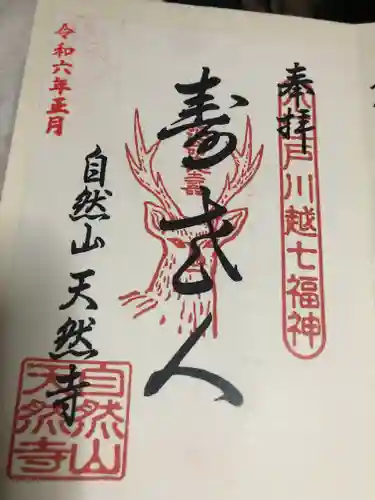 奉拝
小江戸川越七福神
壽老人
令和六年正月
自然山 天然寺
自然山
天然寺